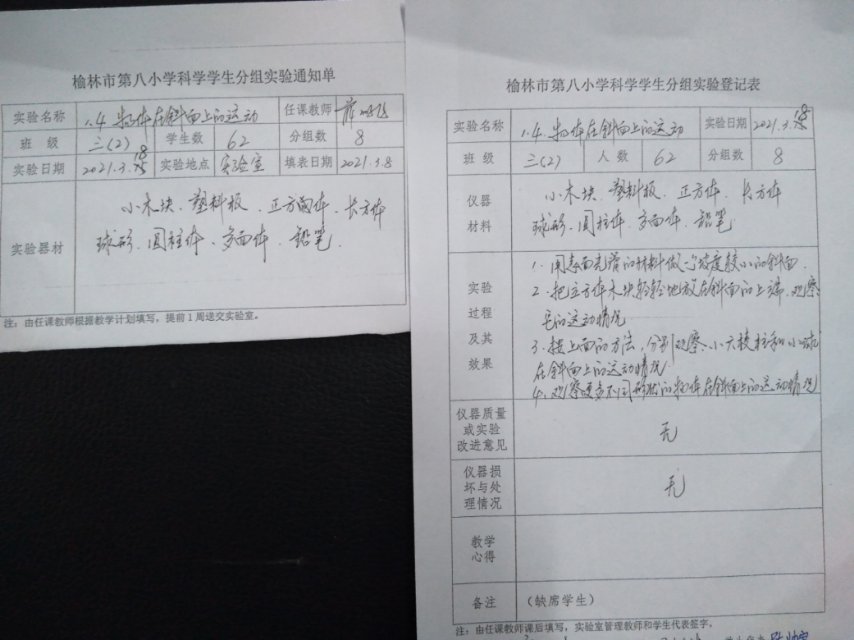 榆林市第八小学科学学生分组实验通知单
实验名称 1.4 物体在斜面上的运动 任课教师
班 级 三(2) 学生数 62 分组数 8
实验日期 2021.3.18 实验地点 实验室 填表日期 2021.3.8
实验器材
小木块、塑料板、正方体、长方体
球形、圆柱体、多面体、铅笔、
注：由任课教师根据教学计划填写，提前1周送交实验室。
榆林市第八小学科学学生分组实验登记表
实验名称 1.4 物体在斜面上的运动 实验日期 2021.3.18
班 级 三(2) 人 数 62 分组数 8
仪器材料
小木块、塑料板、正方体、长方体
球形、圆柱体、多面体、铅笔
实验过程及其效果
1. 用表面光滑的材料做一个坡度较小的斜面.
2. 把立方体木块轻轻地放在斜面的上端，观察
它的运动情况
3. 按上面的方法，分别观察小六棱柱和小球
在斜面上的运动情况
4. 观察更多不同形状的物体在斜面上的运动情况
仪器质量或实验改进意见 无
仪器损坏与处理情况 无
教学心得
备注 （缺席学生）
注：由任课教师课后填写，实验室管理教师和学生代表签字。